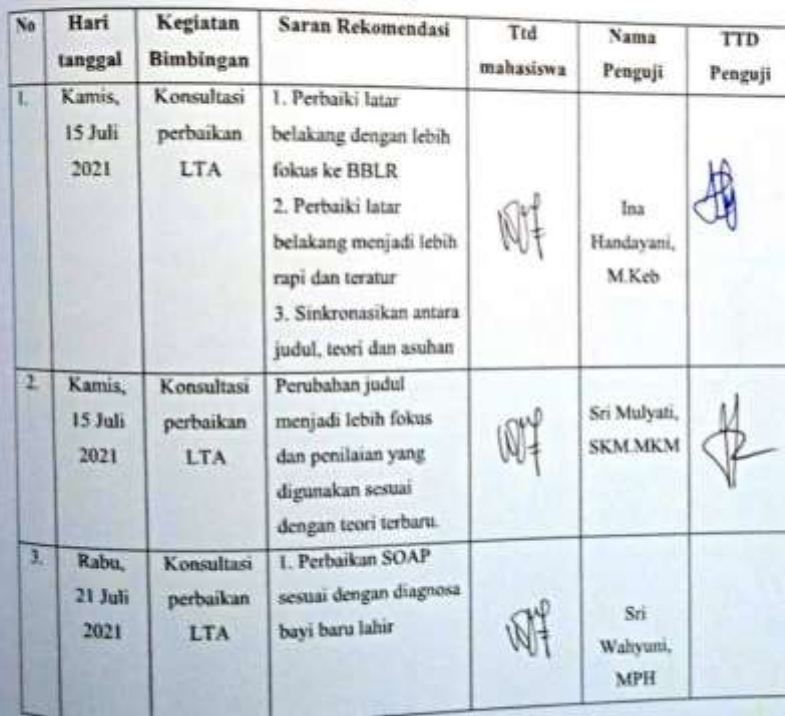 No Hari tanggal Kegiatan Bimbingan Saran Rekomendasi Ttd mahasiswa Nama Penguji TTD Penguji
1. Kamis, 15 Juli 2021
Konsultasi perbaikan LTA
1. Perbaiki latar
belakang dengan lebih
fokus ke BBLR
2. Perbaiki latar
belakang menjadi lebih
rapi dan teratur
3. Sinkronasikan antara
judul, teori dan asuhan
Ina
Handayani,
M.Keb
2. Kamis, 15 Juli 2021
Konsultasi perbaikan LTA
Perubahan judul
menjadi lebih fokus
dan penilaian yang
digunakan sesuai
dengan teori terbaru.
Sri Mulyati,
SKM.MKM
3. Rabu, 21 Juli 2021
Konsultasi perbaikan LTA
1. Perbaikan SOAP
sesuai dengan diagnosa
bayi baru lahir
Sri
Wahyuni,
MPH